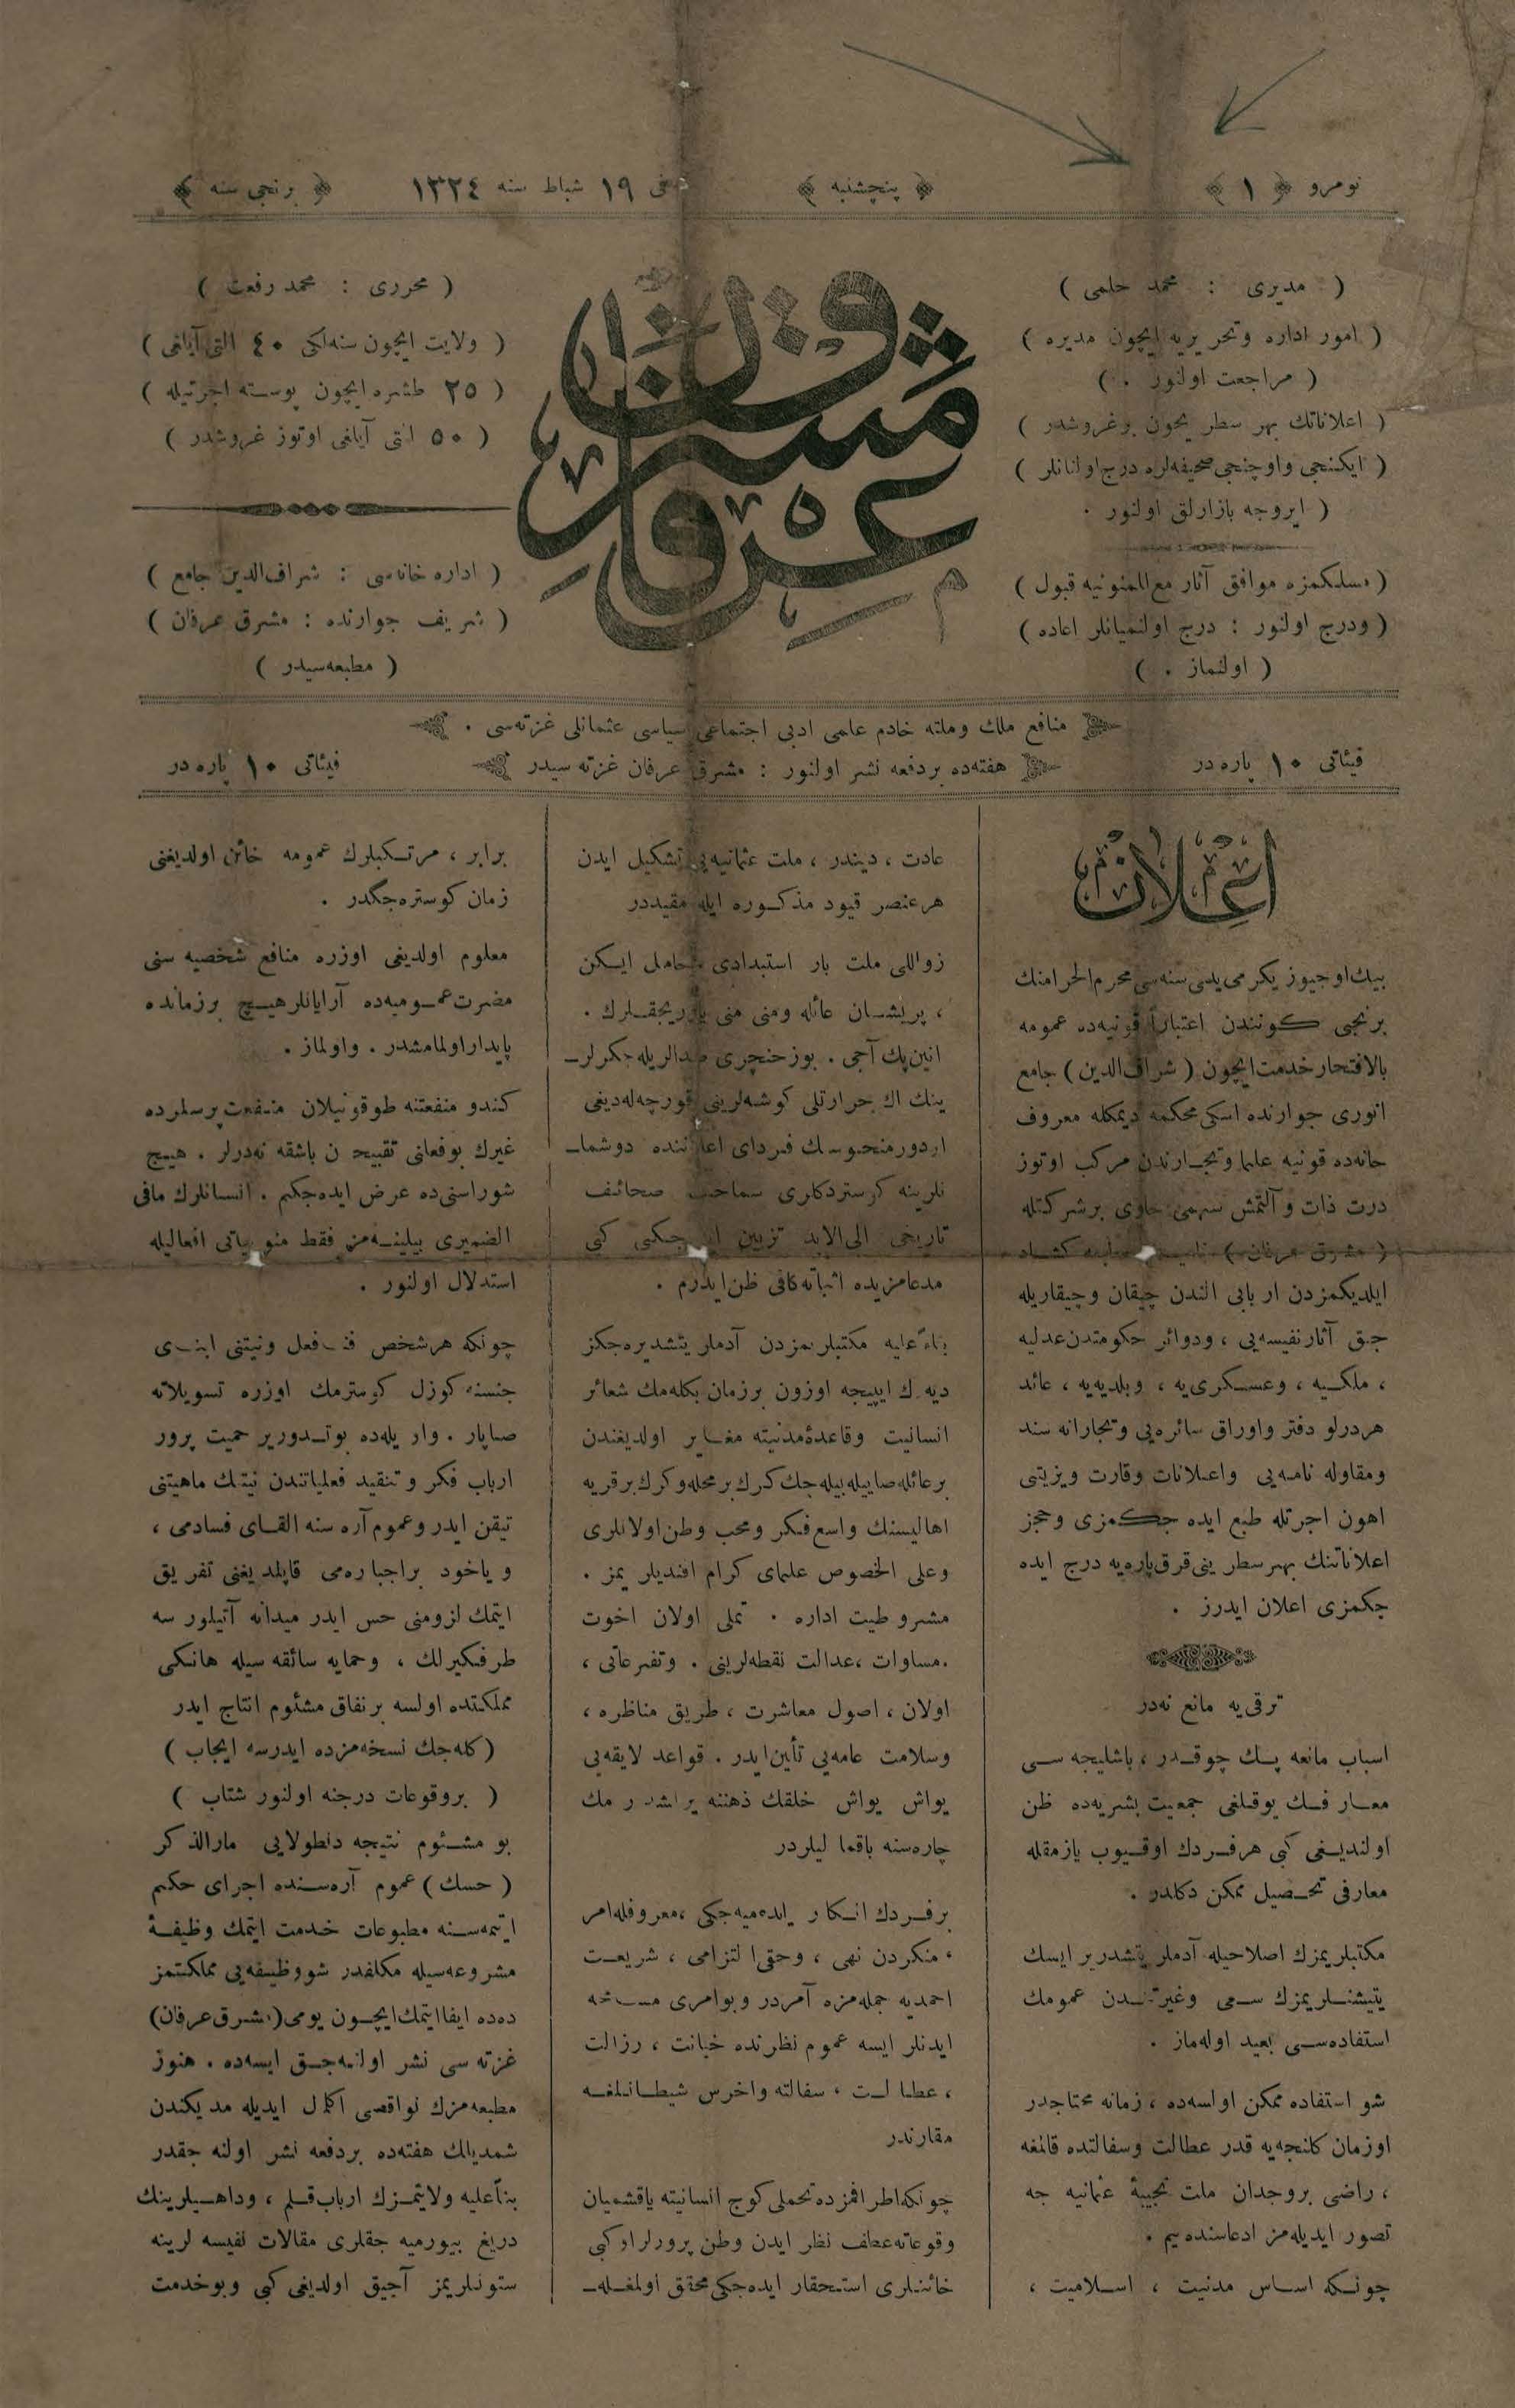 نومرو ﴿ ١ ﴾
﴿ پنچشنبه ﴾
فی ١٩ شباط سنه ١٣٢٤
﴿ برنجی سنه ﴾
( مدیری : محمد حلمی )
( امور اداره وتحریریه ایچون مدیره )
( مراجعت اولنور . )
( اعلاناتك بهر سطر یچون برغروشدر )
( ایكنجی واوچنجی صحیفه‌لره درج اولنانلر )
( ایروجه بازارلق اولنور .
( مسلكمزه موافق آثار مع الممنونیه قبول )
( ودرج اولنور : درج اولنمیانلر اعاده )
( اولنماز . )
مشرق عرفان
( محرری : محمد رفعت )
( ولایت ایچون سنه‌لكی ٤٠ التی آیلغی )
( ٢٥ طشره ایچون پوسته اجرتیله )
( ٥٠ التی آیلغی اوتوز غروشدر )
( اداره خانه‌سی : شراف‌الدین جامع )
( شریف جوارنده : مشرق عرفان )
( مطبعه‌سیدر )
منافع ملك وملته خادم علمی ادبی اجتماعی سیاسی عثمانلی غزته‌سی .
فیئاتی ١٠ پاره در
هفته‌ده بردفعه نشر اولنور : مشرق عرفان غزته سیدر
فیئاتی ١٠ پاره در
اعلان
بیك اوچیوز یكرمی یدی سنه سی محرم الحرامنك
برنجی كونندن اعتباراً قونیه‌ده عمومه
بالافتخار خدمت ایچون ( شراف الدین ) جامع
انوری جوارنده اسكی محكمه دیمكله معروف
خانه‌ده قونیه علما وتجارندن مركب اوتوز
درت ذات و آلتمش سهمی حاوی برشركتله
( مشرق عرفان ) كشاد
ایلدیكمزدن اربابی الندن چیقان وچیقاریله
جق آثار نفیسه‌یی ، ودوائر حكومتدن عدلیه
، ملكیه ، وعسكری‌یه ، وبلدیه‌یه ، عائد
هردرلو دفتر واوراق سائره‌یی وتجارانه سند
ومقاوله نامه‌یی واعلانات وقارت ویزیتی
اهون اجرتله طبع ایده جكمزی وحجز
اعلاناتنك بهر سطرینی قرق پاره‌یه درج ایده
جكمزی اعلان ایدرز .
ترقی‌یه مانع نه‌در
اسباب مانعه پك چوقدر ، باشلیجه سی
معارفك یوقلغی جمعیت بشریه‌ده ظن
اولندیغی كبی هرفردك اوقیوب یازمقله
معارفی تحصیل ممكن دكلدر .
مكتبلریمزك اصلاحیله آدملر یتشدیریر ایسك
یتیشنلریمزك سعی وغیرتندن عمومك
استفاده‌سی بعید اوله‌ماز .
شو استفاده ممكن اولسه‌ده ، زمانه محتاجدر
اوزمان كلنجه‌یه قدر عطالت وسفالتده قالمغه
، راضی بروجدان ملت نجیبهٔ عثمانیه جه
تصور ایدیله‌مز ادعاسنده‌یم .
چونكه اساس مدنیت ، اسلامیت ،
عادت ، دیندر ، ملت عثمانیه‌یی تشكیل ایدن
هرعنصر قیود مذكوره ایله مقیددر
زواللی ملت بار استبدادی حامل ایكن
، پریشان عائله ومنی منی یاوریجقلرك .
انین پك آجی . بوز حنچری صدالریله جكرلر-
ینك اك حرارتلی كوشه‌لرینی قورچه‌له‌دیغی
فردای اعلاننده دوشما-
نلرینه كوستردكاری سماحت صحائف
تاریخی الی الابد تزیین ایده‌جكی كبی
مدعامزیده اثباته كافی ظن ایدرم .
بناءً علیه مكتبلریمزدن آدملر یتشدیره‌جكز
دیه‌رك ایپیجه اوزون برزمان بكله‌مك شعائر
انسانیت وقاعدهٔ مدنیته مغایر اولدیغندن
برعائله صاییله بیله‌جك كرك برمحله وكرك برقریه
اهالیسنك واسع فكر ومحب وطن اولانلری
وعلی الخصوص علمای كرام افندیلریمز .
مشروطیت اداره . تملی اولان اخوت
.مساوات ،عدالت نقطه‌لرینی . وتفرعاتی ،
اولان ، اصول معاشرت ، طریق مناظره ،
وسلامت عامه‌یی تأمین ایدر . قواعد لایقه‌یی
یواش یواش خلقك ذهننه یرلشدیرمك
چاره‌سنه باقمالیلردر
برفردك انكار ایده‌میه‌جكی ،معروفله امر
، منكردن نهی ، وحقی التزامی ، شریعت
احمدیه جمله‌مزه آمردر وبوامری
ایدنلر ایسه عموم نظرنده خیانت ، رزالت
، عطالت ، سفالته واخرس شیطانلغه
مقارندر
چونكه اطرافمزده تحملی كوج انسانیته یاقشمیان
وقوعاته عطف نظر ایدن وطن پرورلراو كبی
خائنلری استحقار ایده‌جكی محقق اولمغله-
برابر ، مرتكبلرك عمومه خائن اولدیغنی
زمان كوستره‌جكدر .
معلوم اولدیغی اوزره منافع شخصیه سنی
مضرت عمومیه‌ده آرایانلر هیچ برزمانده
پایدار اولمامشدر . واولماز .
كندو منفعتنه طوقونیلان منفعت پرسلرده
غیرك بوفعلنی تقبیحدن باشقه نه‌درلر . هیچ
شوراسنی‌ده عرض ایده‌جكم . انسانلرك مافی
الضمیری بیلینه‌مز فقط منویاتی افعالیله
استدلال اولنور .
چونكه هرشخص فعل ونیتنی ابنای
جنسنه كوزل كوسترمك اوزره تسویلاته
صاپار . واریله‌ده بوتدویر حمیت پرور
ارباب فكر وتنقید فعلیاتندن نیتك ماهیتنی
تیقن ایدر وعموم آره سنه القای فسادمی ،
ویاخود براجباره‌می قاپلدیغنی تفریق
ایتمك لزومنی حس ایدر میدانه آتیلور سه
طرفكیرلك ، وحمایه سائقه سیله هانكی
مملكتده اولسه برنفاق مشئوم انتاج ایدر
( كله‌جك نسخه‌مزده ایدرسه ایجاب )
( بروقوعات درجنه اولنور شتاب )
بو مشئوم نتیجه دنطولایی مارالذكر
( حسك ) عموم آره‌سنده اجرای حكم
ایتمه‌سنه مطبوعات خدمت ایتمك وظیفهٔ
مشروعه‌سیله مكلفدر شووظیفه‌یی مملكتمز
ده‌ده ایفا ایتمك ایچون یومی (مشرق عرفان)
غزته سی نشر اولنه‌جق ایسه‌ده . هنوز
مطبعه‌مزك نواقصی اكمال ایدیله مدیكندن
شمدیلك هفته‌ده بردفعه نشر اولنه جقدر
بناءً علیه ولایتمزك ارباب قلم ، وداهیلرینك
دریغ بیورمیه جقلری مقالات نفیسه لرینه
ستونلریمز آچیق اولدیغی كبی وبوخدمت